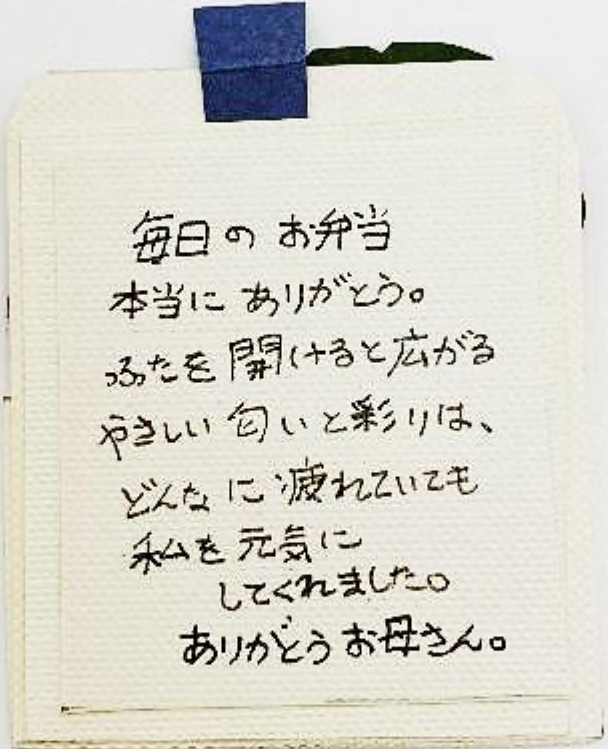 毎日のお弁当
本当にありがとう。
ふたを開けると広がる
やさしい匂いと彩りは、
どんなに疲れていても
私を元気に
してくれました。
ありがとうお母さん。